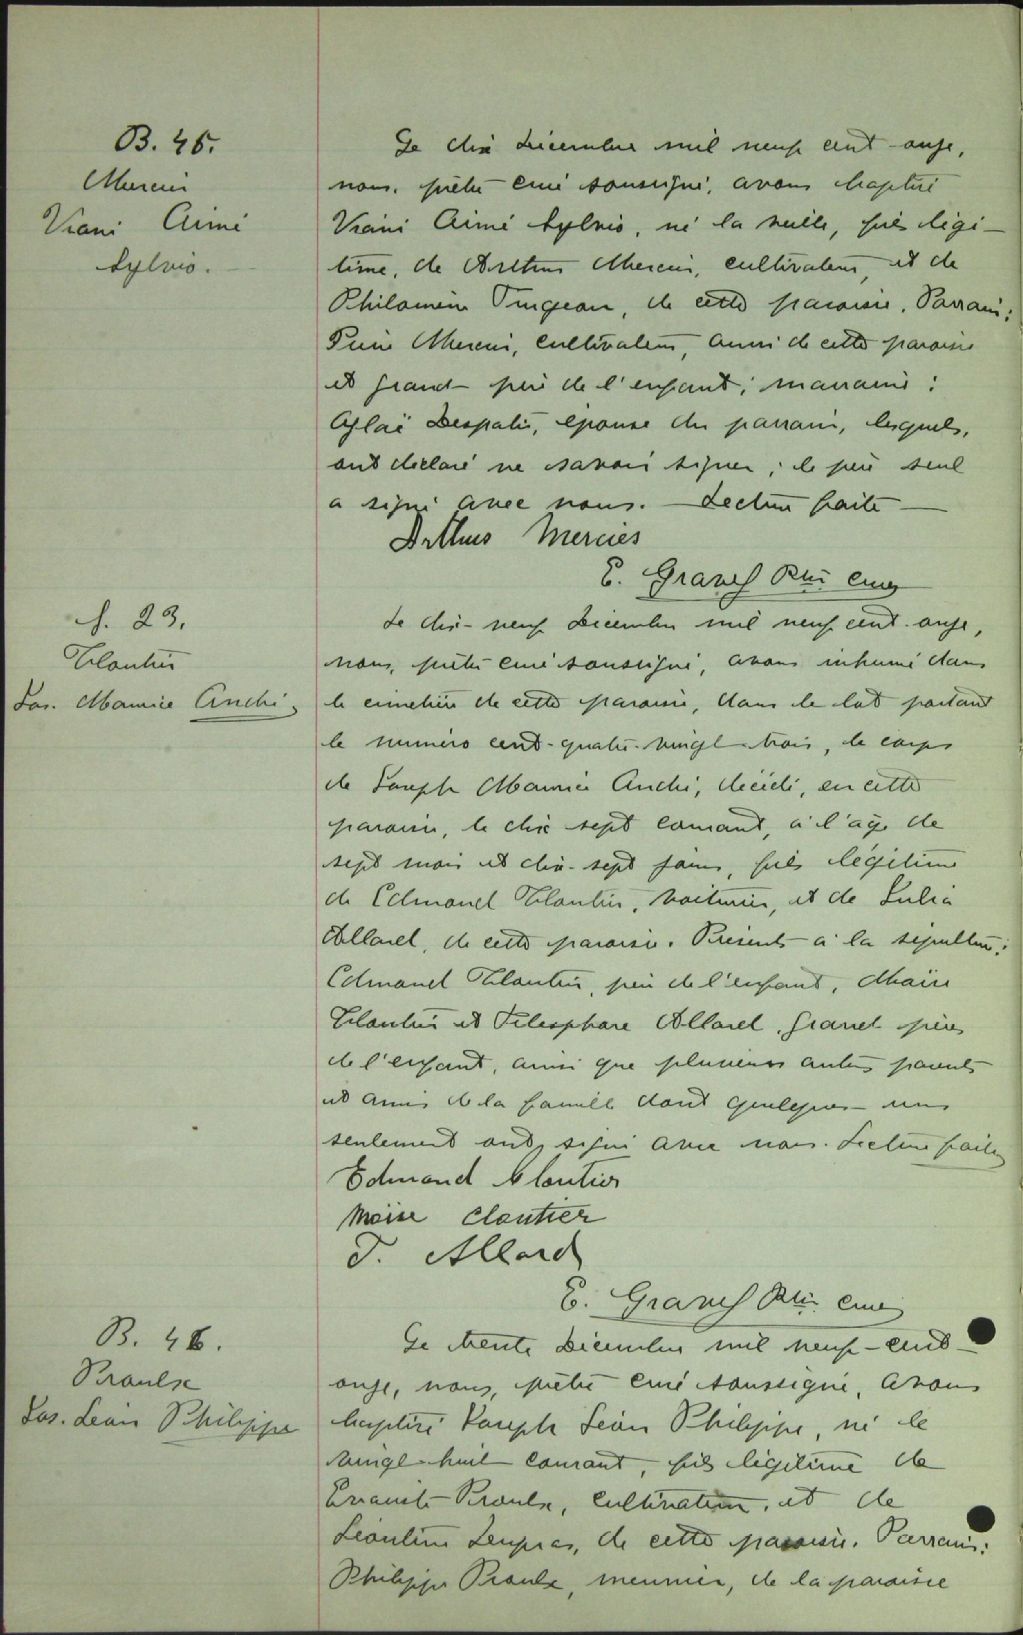 B. 45.
Mercier
Viani Aimé
Sylvio.
Le dix Décembre mil neuf cent onze,
nous, prêtre curé soussigné, avons baptisé
Viani Aimé Sylvio, né la veille, fils légi-
time, de Arthur Mercier, cultivateur, et de
Philomène Turgeon, de cette paroisse. Parrain:
Pierre Mercier, cultivateur, aussi de cette paroisse
et grand-père de l'enfant; marraine:
Aglaë Despatis, épouse du parrain, lesquels,
ont déclaré ne savoir signer; le père seul
a signé avec nous. — Lecture faite —
Arthur Mercier
E. Gravel Ptre curé
S. 23.
Cloutier
Jos. Maurice André
Le dix-neuf Décembre mil neuf cent onze,
nous, prêtre curé soussigné, avons inhumé dans
le cimetière de cette paroisse, dans le lot portant
le numéro cent-quatre-vingt-trois, le corps
de Joseph Maurice André, décédé, en cette
paroisse, le dix sept courant, à l'âge de
sept mois et dix-sept jours, fils légitime
de Edmond Cloutier, voiturier, et de Julia
Allard, de cette paroisse. Présents à la sépulture:
Edmond Cloutier, père de l'enfant, Moïse
Cloutier et Télesphore Allard, grand pères
de l'enfant, ainsi que plusieurs autres parents
et amis de la famille dont quelques-uns
seulement ont signé avec nous. Lecture faite
Edmond Cloutier
Moise Cloutier
T. Allard
E. Gravel Ptre curé
B. 46.
Proulx
Jos. Léon Philippe
Le trente Décembre mil neuf-cent-
onze, nous, prêtre curé soussigné, avons
baptisé Joseph Léon Philippe, né le
vingt-huit courant, fils légitime de
Evariste Proulx, cultivateur, et de
Léontine Dupras, de cette paroisse. Parrain:
Philippe Proulx, meunier, de la paroisse